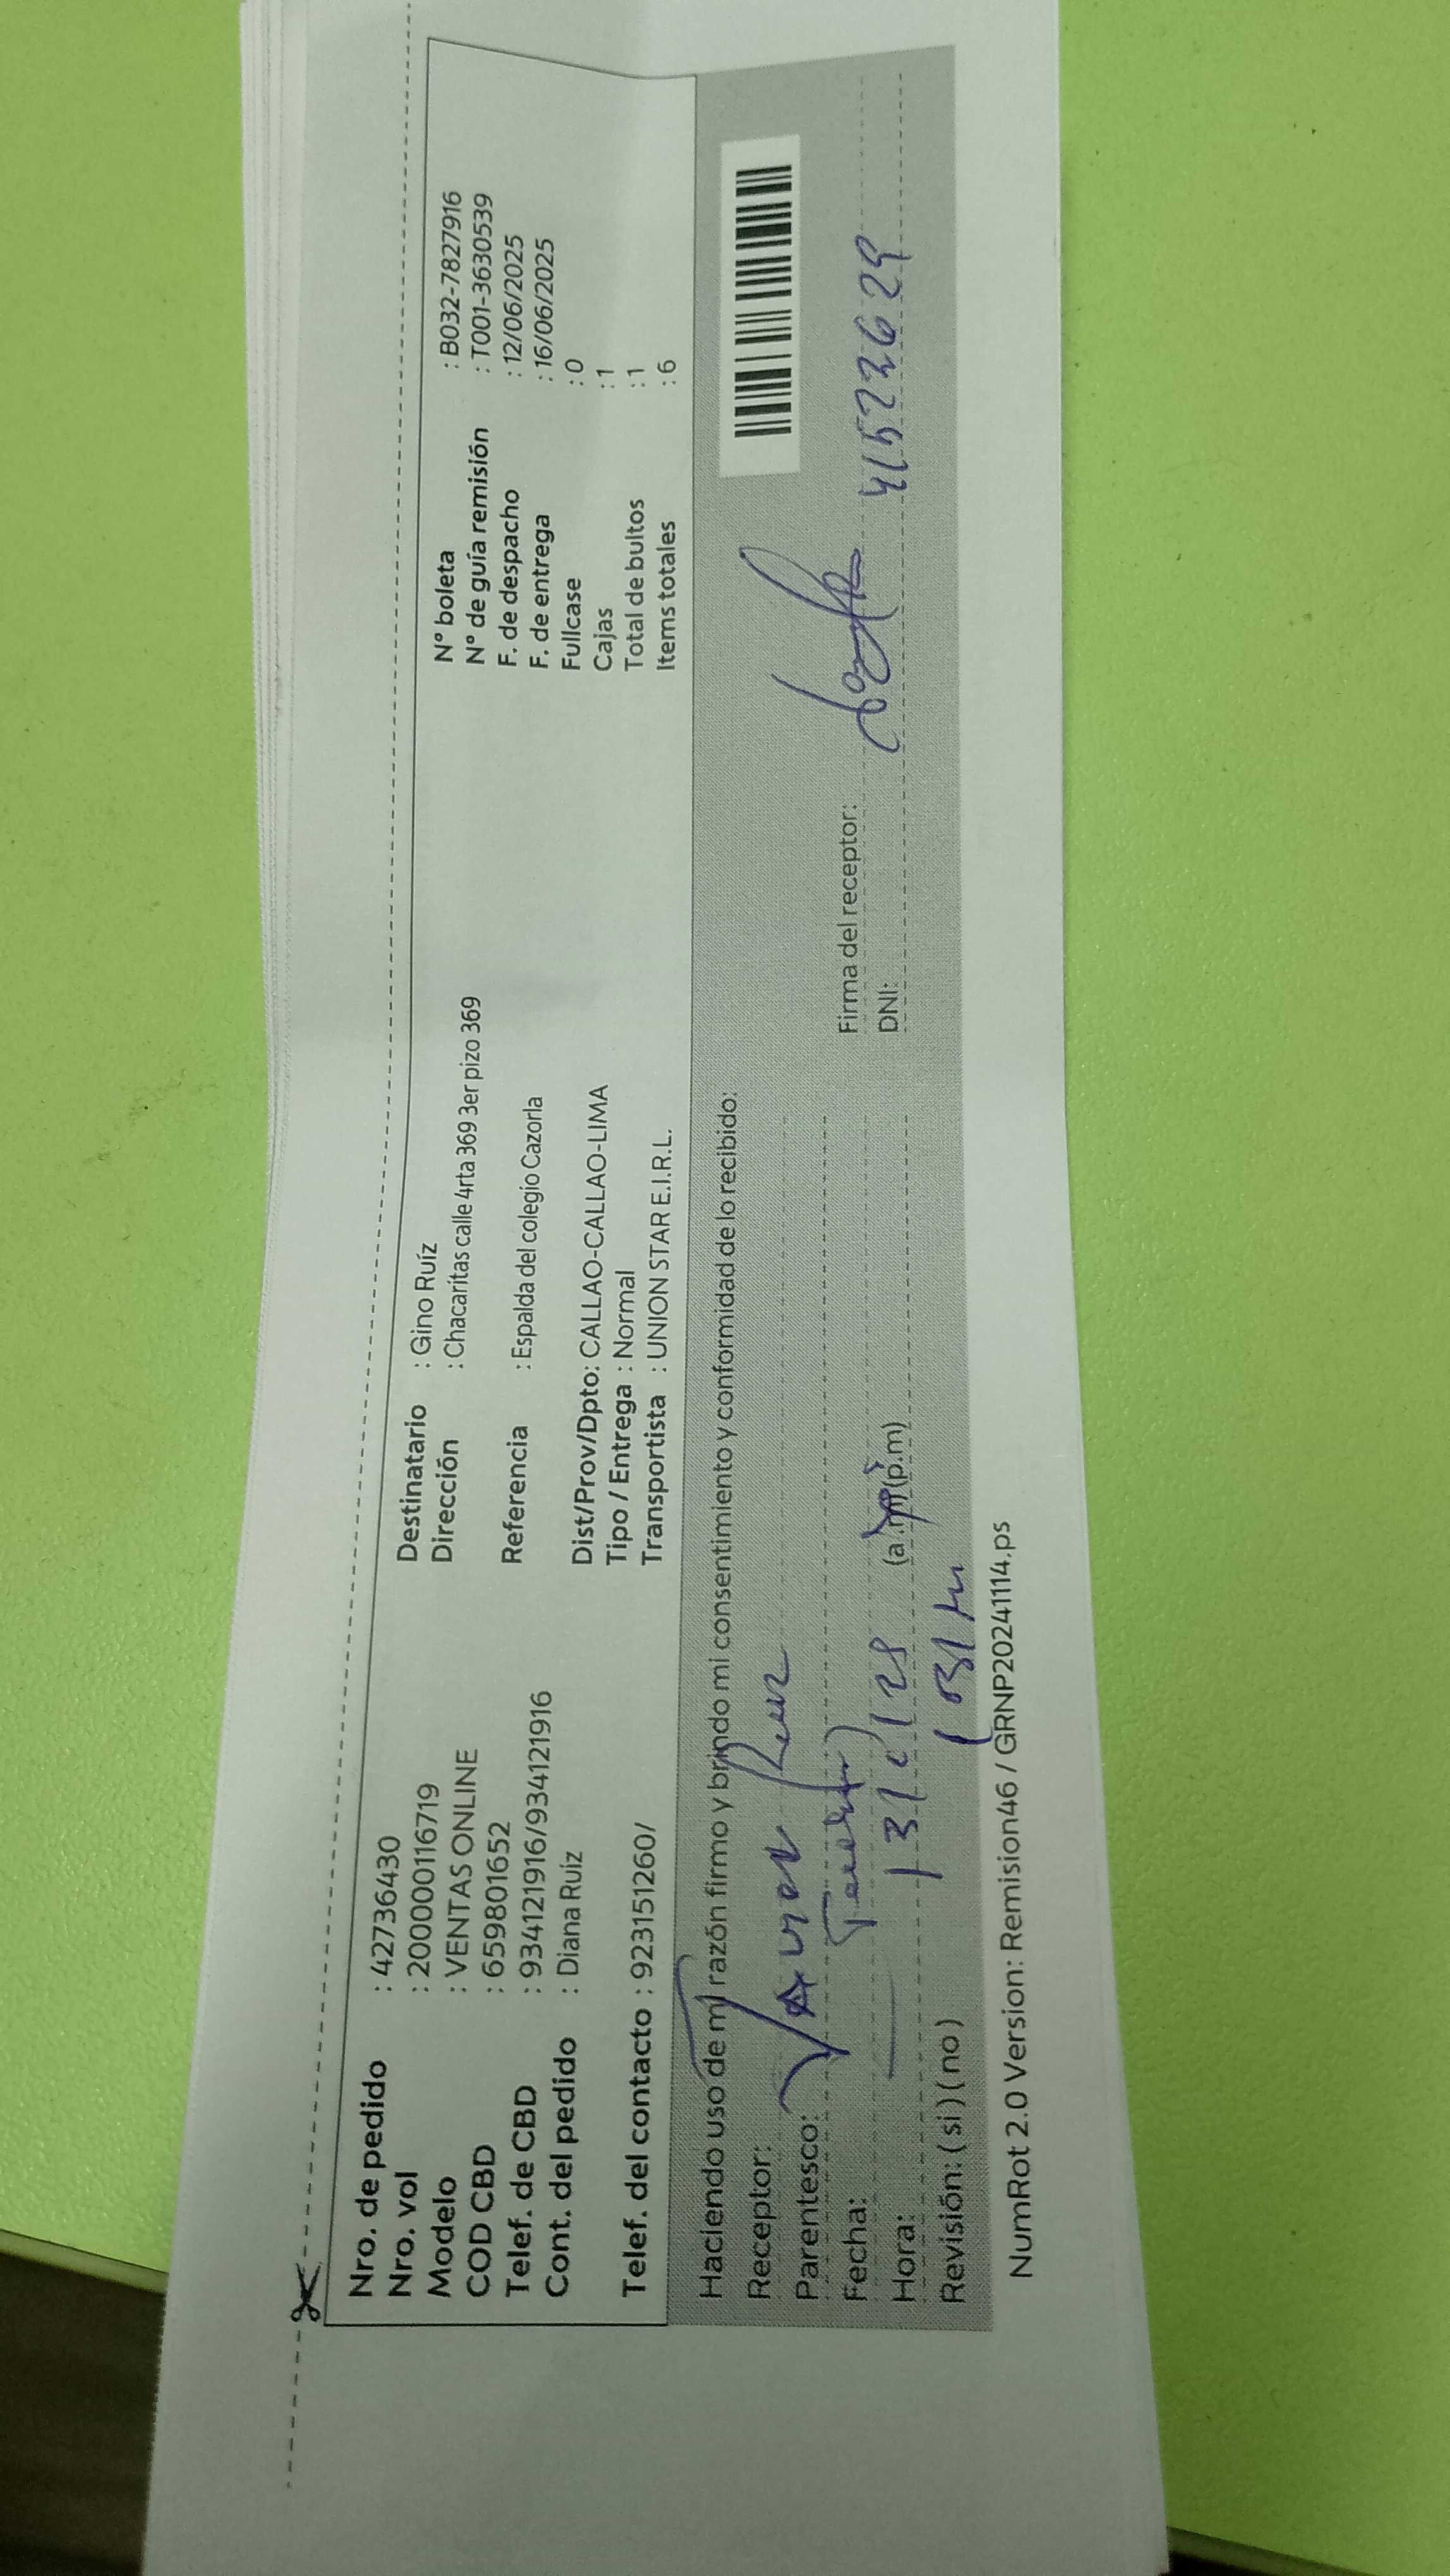 Nro. de pedido : 42736430
Nro. vol : 200000116719
Modelo : VENTAS ONLINE
COD CBD : 659801652
Telef. de CBD : 934121916/934121916
Cont. del pedido : Diana Ruiz
Telef. del contacto : 923151260/
Destinatario : Gino Ruíz
Dirección : Chacaritas calle 4rta 369 3er pizo 369
Referencia : Espalda del colegio Cazorla
Dist/Prov/Dpto: CALLAO-CALLAO-LIMA
Tipo / Entrega : Normal
Transportista : UNION STAR E.I.R.L.
N° boleta : B032-7827916
N° de guía remisión : T001-3630539
F. de despacho : 12/06/2025
F. de entrega : 16/06/2025
Fullcase : 0
Cajas : 1
Total de bultos : 1
Items totales : 6
Haciendo uso de mi razón firmo y brindo mi consentimiento y conformidad de lo recibido:
Receptor:
Parentesco:
Fecha:
Hora: (a.m) (p.m)
Revisión: ( si ) ( no )
Firma del receptor:
DNI: 41523629
NumRot 2.0 Version: Remision46 / GRNP20241114.ps